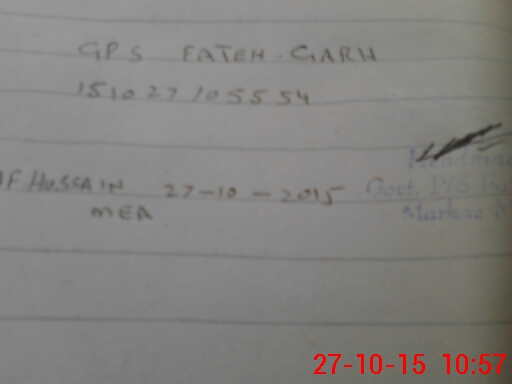 GPS FATEH-GARH
151027105554
F. HUSSAIN 27-10-2015
MEA
Govt. P/S
Markaz
27-10-15 10:57